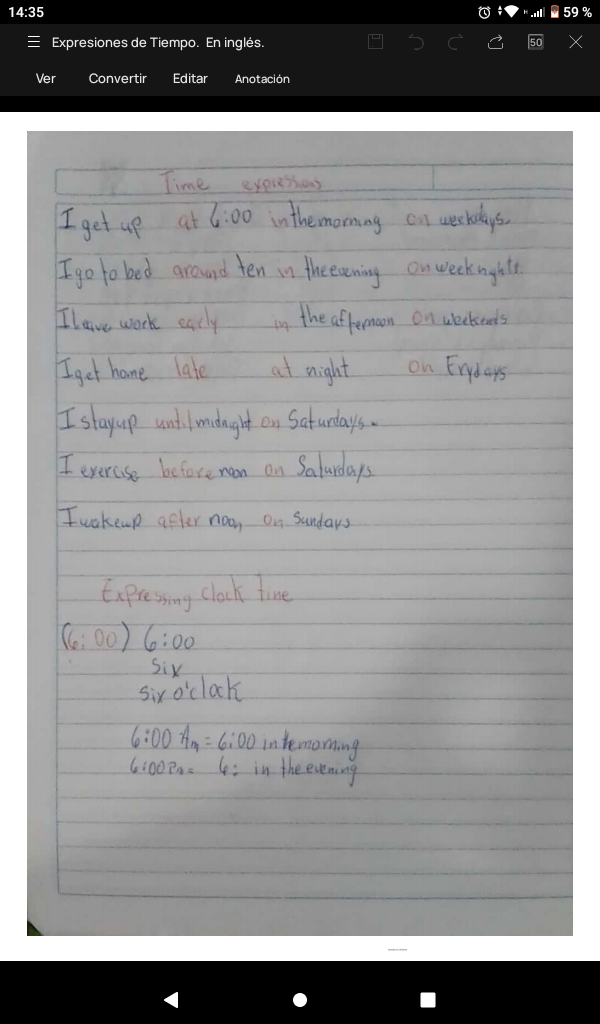 14:35 59 %
Expresiones de Tiempo. En inglés. 50
Ver Convertir Editar Anotación
Time expressions
I get up at 6:00 in the morning on weekdays.
I go to bed around ten in the evening on weeknights.
I leave work early in the afternoon on weekends
I get home late at night on Frydays
I stay up until midnight on Saturdays.
I exercise before noon on Saturdays
I wake up after noon on Sundays
Expressing clock time
(6:00) 6:00
six
six o'clock
6:00 Am = 6:00 in the morning
6:00 Pm = 6: in the evening